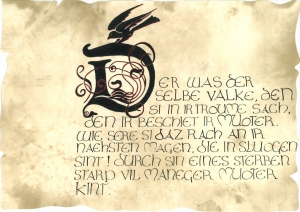 DER WAS DER
SELBE VALKE, DEN
SI IN IR TROUME SACH,
DEN IR BESCHIET IR MUOTER.
WIE SERE SI DAZ RACH AN IR
NAEHSTEN MAGEN, DIE IN SLUOGEN
SINT! DURCH SIN EINES STERBEN
STARP VIL MANEGER MUOTER
KINT.